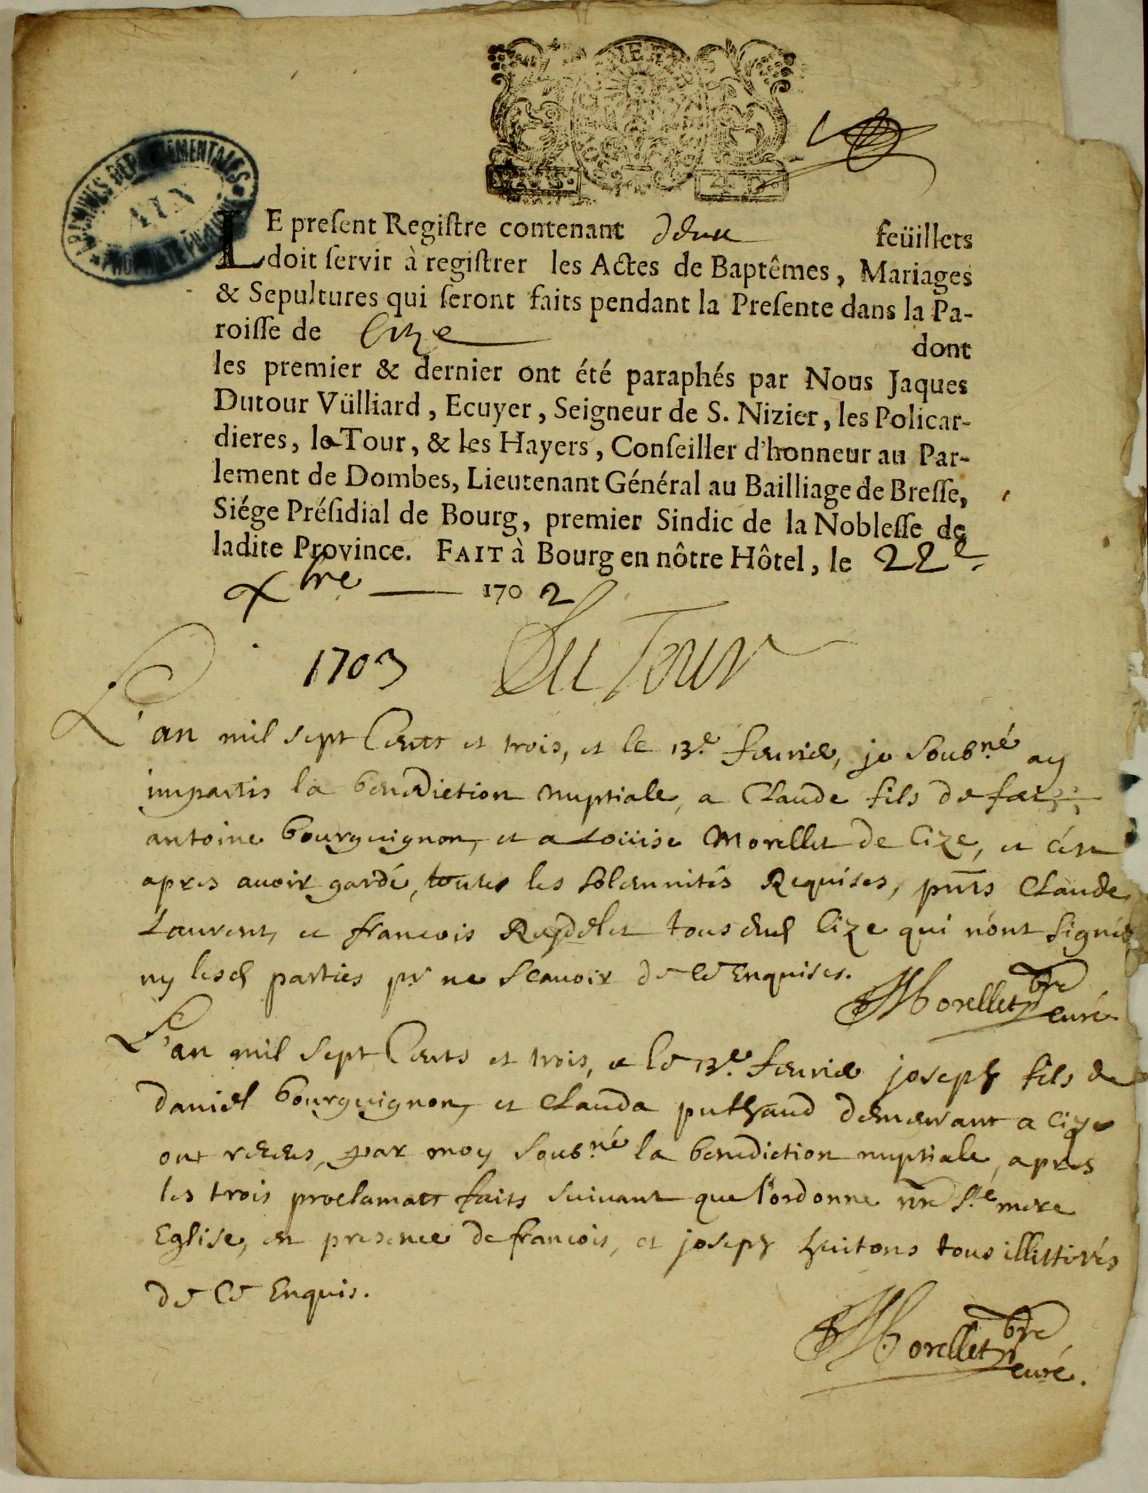 ARCHIVES DEPARTEMENTALES
AIN
LE present Registre contenant deux feüillets
doit servir à registrer les Actes de Baptêmes, Mariages
& Sepultures qui seront faits pendant la Presente dans la Pa-
roisse de Cize dont
les premier & dernier ont été paraphés par Nous Jaques
Dutour Vülliard, Ecuyer, Seigneur de S. Nizier, les Policar-
dieres, la Tour, & les Hayers, Conseiller d'honneur au Par-
lement de Dombes, Lieutenant Général au Bailliage de Bresse,
Siége Présidial de Bourg, premier Sindic de la Noblesse de
ladite Province. FAIT à Bourg en nôtre Hôtel, le 22e
Xbre 1702
1703 Du Tour
L'an mil sept Cents et trois, et le 13.e feurier, je soubné ay
impartis la benediction nuptiale, a Claude fils de feu
antoine bourguignon, et a Loüise Morellet de Cize, et c'est
apres auoir gardé, toutes les solemnités Requises, pnts Claude
Laurent, et francois Reydelet tous dud Cize qui n'ont signés
ny lesd parties pr ne scauoir de ce Enquises.
Morellet pbre
curé
L'an mil sept Cents et trois, et le 13.e feurier joseph fils de
daniel bourguignon, et Clauda puthaud demeurant a Cize
ont receus, par moy soubné la benediction nuptiale, apres
les trois proclamaons faits suivant que l'ordonne nre Ste mere
Eglise, en presence de francois, et joseph huitons tous illitirés
de ce Enquis.
Morellet pbre
curé.